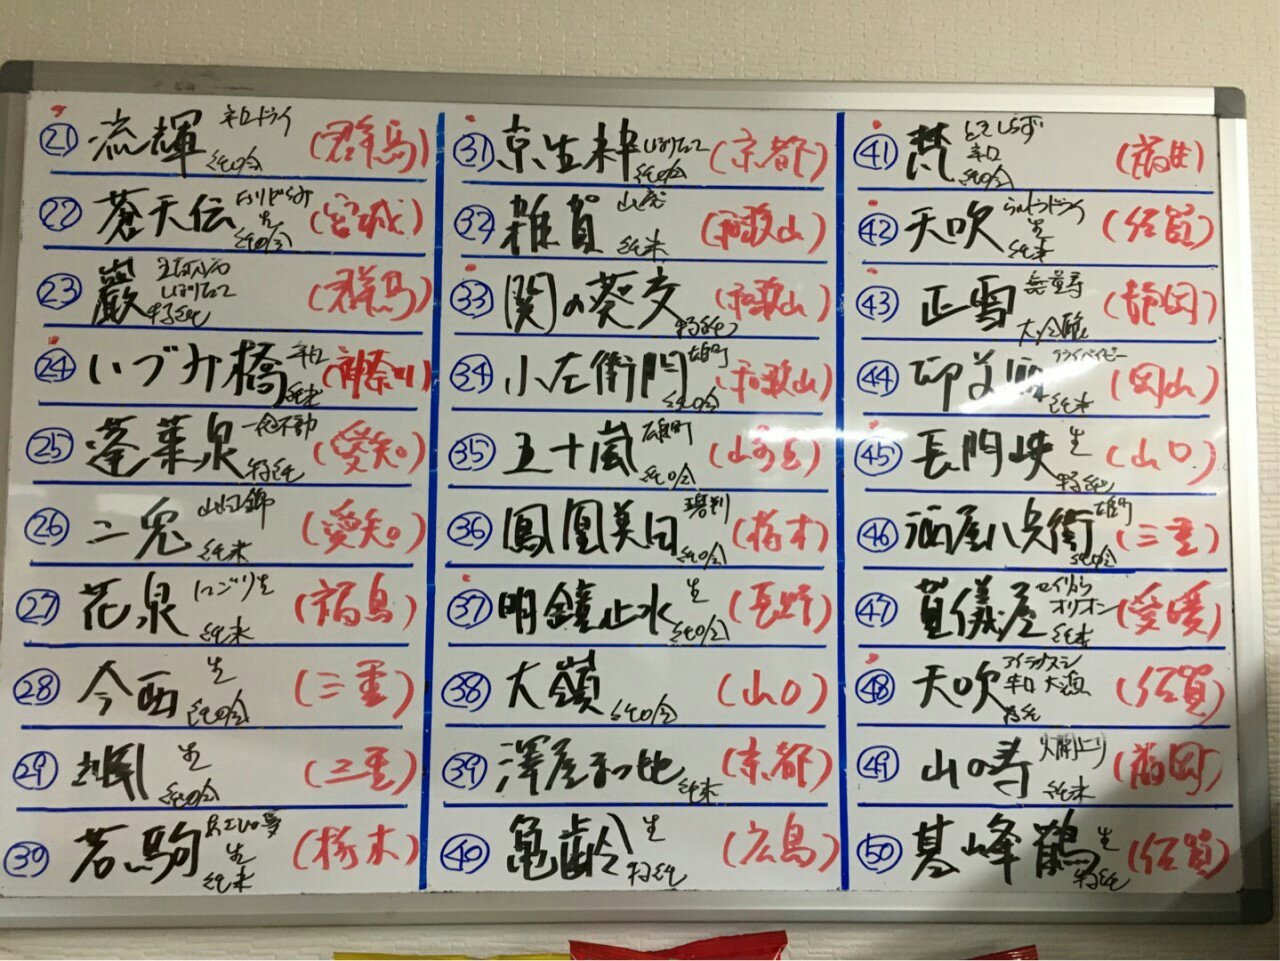 21 流輝 辛口ドライ 純吟 (群馬)
22 蒼天伝 生 純吟 (宮城)
23 巖 しぼりたて 特純 (群馬)
24 いづみ橋 辛口 純米 (神奈川)
25 蓬莱泉 一念不動 特純 (愛知)
26 二兎 山田錦 純米 (愛知)
27 花泉 にごり生 純米 (福島)
28 今西 生 純吟 (三重)
29 生 純吟 (三重)
30 若駒 生 純米 (栃木)
31 京生粋 しぼりたて 純吟 (京都)
32 雑賀 山廃 純米 (和歌山)
33 関の葵文 特純 (和歌山)
34 小左衛門 雄町 純吟 (和歌山)
35 五十嵐 雄町 純吟 (埼玉)
36 鳳凰美田 瑠判 純吟 (栃木)
37 明鏡止水 生 純吟 (長野)
38 大嶺 純吟 (山口)
39 澤屋まつもと 純米 (京都)
40 亀齢 生 特純 (広島)
41 梵 ときしらず 辛口 純吟 (福井)
42 天吹 生 純米 (佐賀)
43 正雪 無量寿 大吟醸 (静岡)
44 純米 (岡山)
45 長門峡 生 特純 (山口)
46 酒屋八兵衛 雄町 純吟 (三重)
47 賀儀屋 セイカ オリオン 純米 (愛媛)
48 天吹 辛口 特純 (佐賀)
49 山の寿 純米 (福岡)
50 基峰鶴 生 特純 (佐賀)